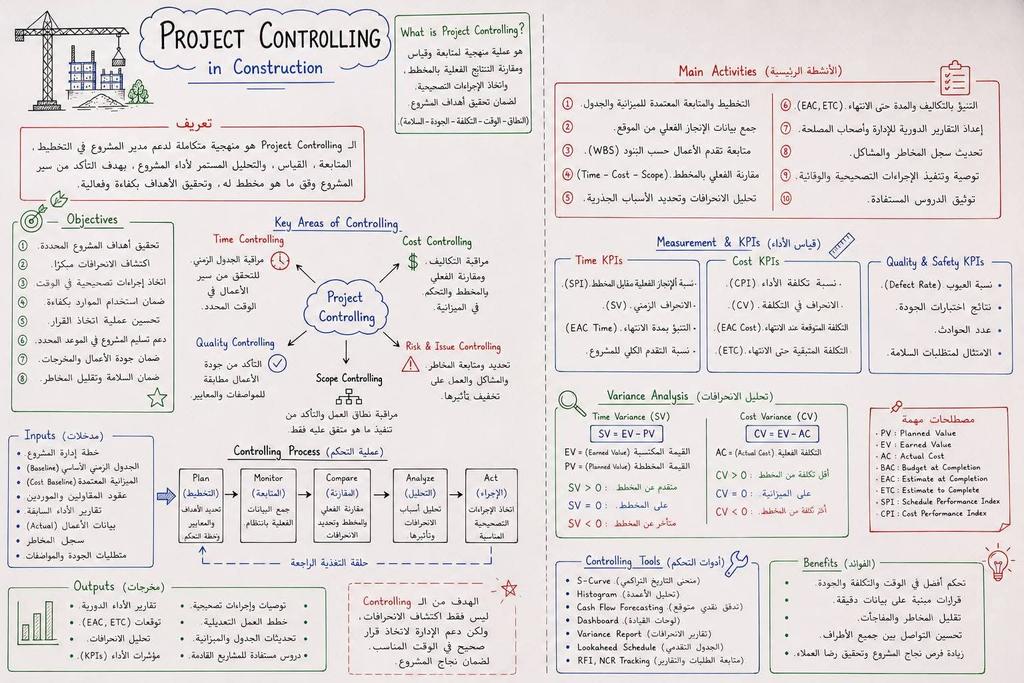 PROJECT CONTROLLING
in Construction
What is Project Controlling?
هو عملية منهجية لمتابعة وقياس
ومقارنة النتائج الفعلية بالمخطط،
واتخاذ الإجراءات التصحيحية.
لضمان تحقيق أهداف المشروع.
(النطاق – الوقت – التكلفة – الجودة – السلامة)
تعريف
الـ Project Controlling هو منهجية متكاملة لدعم مدير المشروع في التخطيط،
المتابعة، القياس، والتحليل المستمر لأداء المشروع، بهدف التأكد من سير
المشروع وفق ما هو مخطط له، وتحقيق الأهداف بكفاءة وفعالية.
Objectives
① تحقيق أهداف المشروع المحددة.
② اكتشاف الانحرافات مبكرًا.
③ اتخاذ إجراءات تصحيحية في الوقت
④ ضمان استخدام الموارد بكفاءة.
⑤ تحسين عملية اتخاذ القرار.
⑥ دعم تسليم المشروع في الموعد المحدد.
⑦ ضمان جودة الأعمال والمخرجات.
⑧ ضمان السلامة وتقليل المخاطر.
Key Areas of Controlling
Time Controlling
مراقبة الجدول الزمني.
للتحقق من سير
الأعمال في
الوقت المحدد.
Cost Controlling
مراقبة التكاليف.
ومقارنة الفعلي
والمخطط والتحكم
في الميزانية.
Project
Controlling
Quality Controlling
التأكد من جودة
الأعمال مطابقة
للمواصفات والمعايير.
Risk & Issue Controlling
تحديد ومتابعة المخاطر.
والمشاكل والعمل على
تخفيف تأثيرها.
Scope Controlling
مراقبة نطاق العمل والتأكد من
تنفيذ ما هو متفق عليه فقط.
Inputs (مدخلات)
• خطة إدارة المشروع.
• الجدول الزمني الأساسي (Baseline)
• الميزانية المعتمدة (Cost Baseline)
• عقود المقاولين والموردين
• تقارير الأداء السابقة.
• بيانات الأعمال (Actual)
• سجل المخاطر
• متطلبات الجودة والمواصفات
Controlling Process (عملية التحكم)
Plan
(التخطيط)
تحديد الأهداف
والمعايير
وخطة التحكم.
Monitor
(المتابعة)
جمع البيانات
الفعلية بانتظام.
Compare
(المقارنة)
مقارنة الفعلي
والمخطط وتحديد
الانحرافات
Analyze
(التحليل)
تحليل أسباب
الانحرافات
وتأثيرها.
Act
(الإجراء)
اتخاذ الإجراءات
التصحيحية
المناسبة
حلقة التغذية الراجعة
Outputs (مخرجات)
• تقارير الأداء الدورية.
• توقعات (EAC, ETC).
• تحليل الانحرافات.
• مؤشرات الأداء (KPIs)
• توصيات وإجراءات تصحيحية.
• خطط العمل التعديلية.
• تحديثات الجدول والميزانية.
• دروس مستفادة للمشاريع القادمة.
الهدف من الـ Controlling
ليس فقط اكتشاف الانحرافات،
ولكن دعم الإدارة لاتخاذ قرار
صحيح في الوقت المناسب.
لضمان نجاح المشروع.
Main Activities (الأنشطة الرئيسية)
① التخطيط والمتابعة المعتمدة للميزانية والجدول.
② جمع بيانات الإنجاز الفعلي من الموقع.
③ متابعة تقدم الأعمال حسب البنود (WBS).
④ مقارنة الفعلي بالمخطط. (Time – Cost – Scope)
⑤ تحليل الانحرافات وتحديد الأسباب الجذرية.
⑥ التنبؤ بالتكاليف والمدة حتى الانتهاء. (EAC, ETC).
⑦ إعداد التقارير الدورية للإدارة وأصحاب المصلحة.
⑧ تحديث سجل المخاطر والمشاكل.
⑨ توصية وتنفيذ الإجراءات التصحيحية والوقائية.
⑩ توثيق الدروس المستفادة.
Measurement & KPIs (قياس الأداء)
Time KPIs
• نسبة الإنجاز الفعلية مقابل المخطط. (SPI)
• الانحراف الزمني. (SV).
• التنبؤ بمدة الانتهاء. (EAC Time)
• نسبة التقدم الكلي للمشروع.
Cost KPIs
• نسبة تكلفة الأداء. (CPI)
• الانحراف في التكلفة. (CV)
• التكلفة المتوقعة عند الانتهاء. (EAC Cost)
• التكلفة المتبقية حتى الانتهاء. (ETC)
Quality & Safety KPIs
• نسبة العيوب (Defect Rate)
• نتائج اختبارات الجودة.
• عدد الحوادث.
• الامتثال لمتطلبات السلامة.
Variance Analysis (تحليل الانحرافات)
Time Variance (SV)
SV = EV – PV
EV = (Earned Value) القيمة المكتسبة
PV = (Planned Value) القيمة المخططة
SV > 0 : متقدم عن المخطط.
SV = 0 : على المخطط.
SV < 0 : متأخر عن المخطط.
Cost Variance (CV)
CV = EV – AC
AC = (Actual Cost) التكلفة الفعلية
CV > 0 : أقل تكلفة من المخطط.
CV = 0 : على الميزانية.
CV < 0 : أكثر تكلفة من المخطط.
مصطلحات مهمة
• PV : Planned Value
• EV : Earned Value
• AC : Actual Cost
• BAC : Budget at Completion
• EAC : Estimate at Completion
• ETC : Estimate to Complete
• SPI : Schedule Performance Index
• CPI : Cost Performance Index
Controlling Tools (أدوات التحكم)
• S-Curve (منحنى التاريخ التراكمي)
• Histogram (تحليل الأعمدة)
• Cash Flow Forecasting (تدفق نقدي متوقع)
• Dashboard (لوحات القيادة)
• Variance Report (تقارير الانحرافات)
• Lookahead Schedule (الجدول التقدمي)
• RFI, NCR Tracking (متابعة الطلبات والتقارير)
Benefits (الفوائد)
• تحكم أفضل في الوقت والتكلفة والجودة.
• قرارات مبنية على بيانات دقيقة.
• تقليل المخاطر والمفاجآت.
• تحسين التواصل بين جميع الأطراف.
• زيادة فرص نجاح المشروع وتحقيق رضا العملاء.